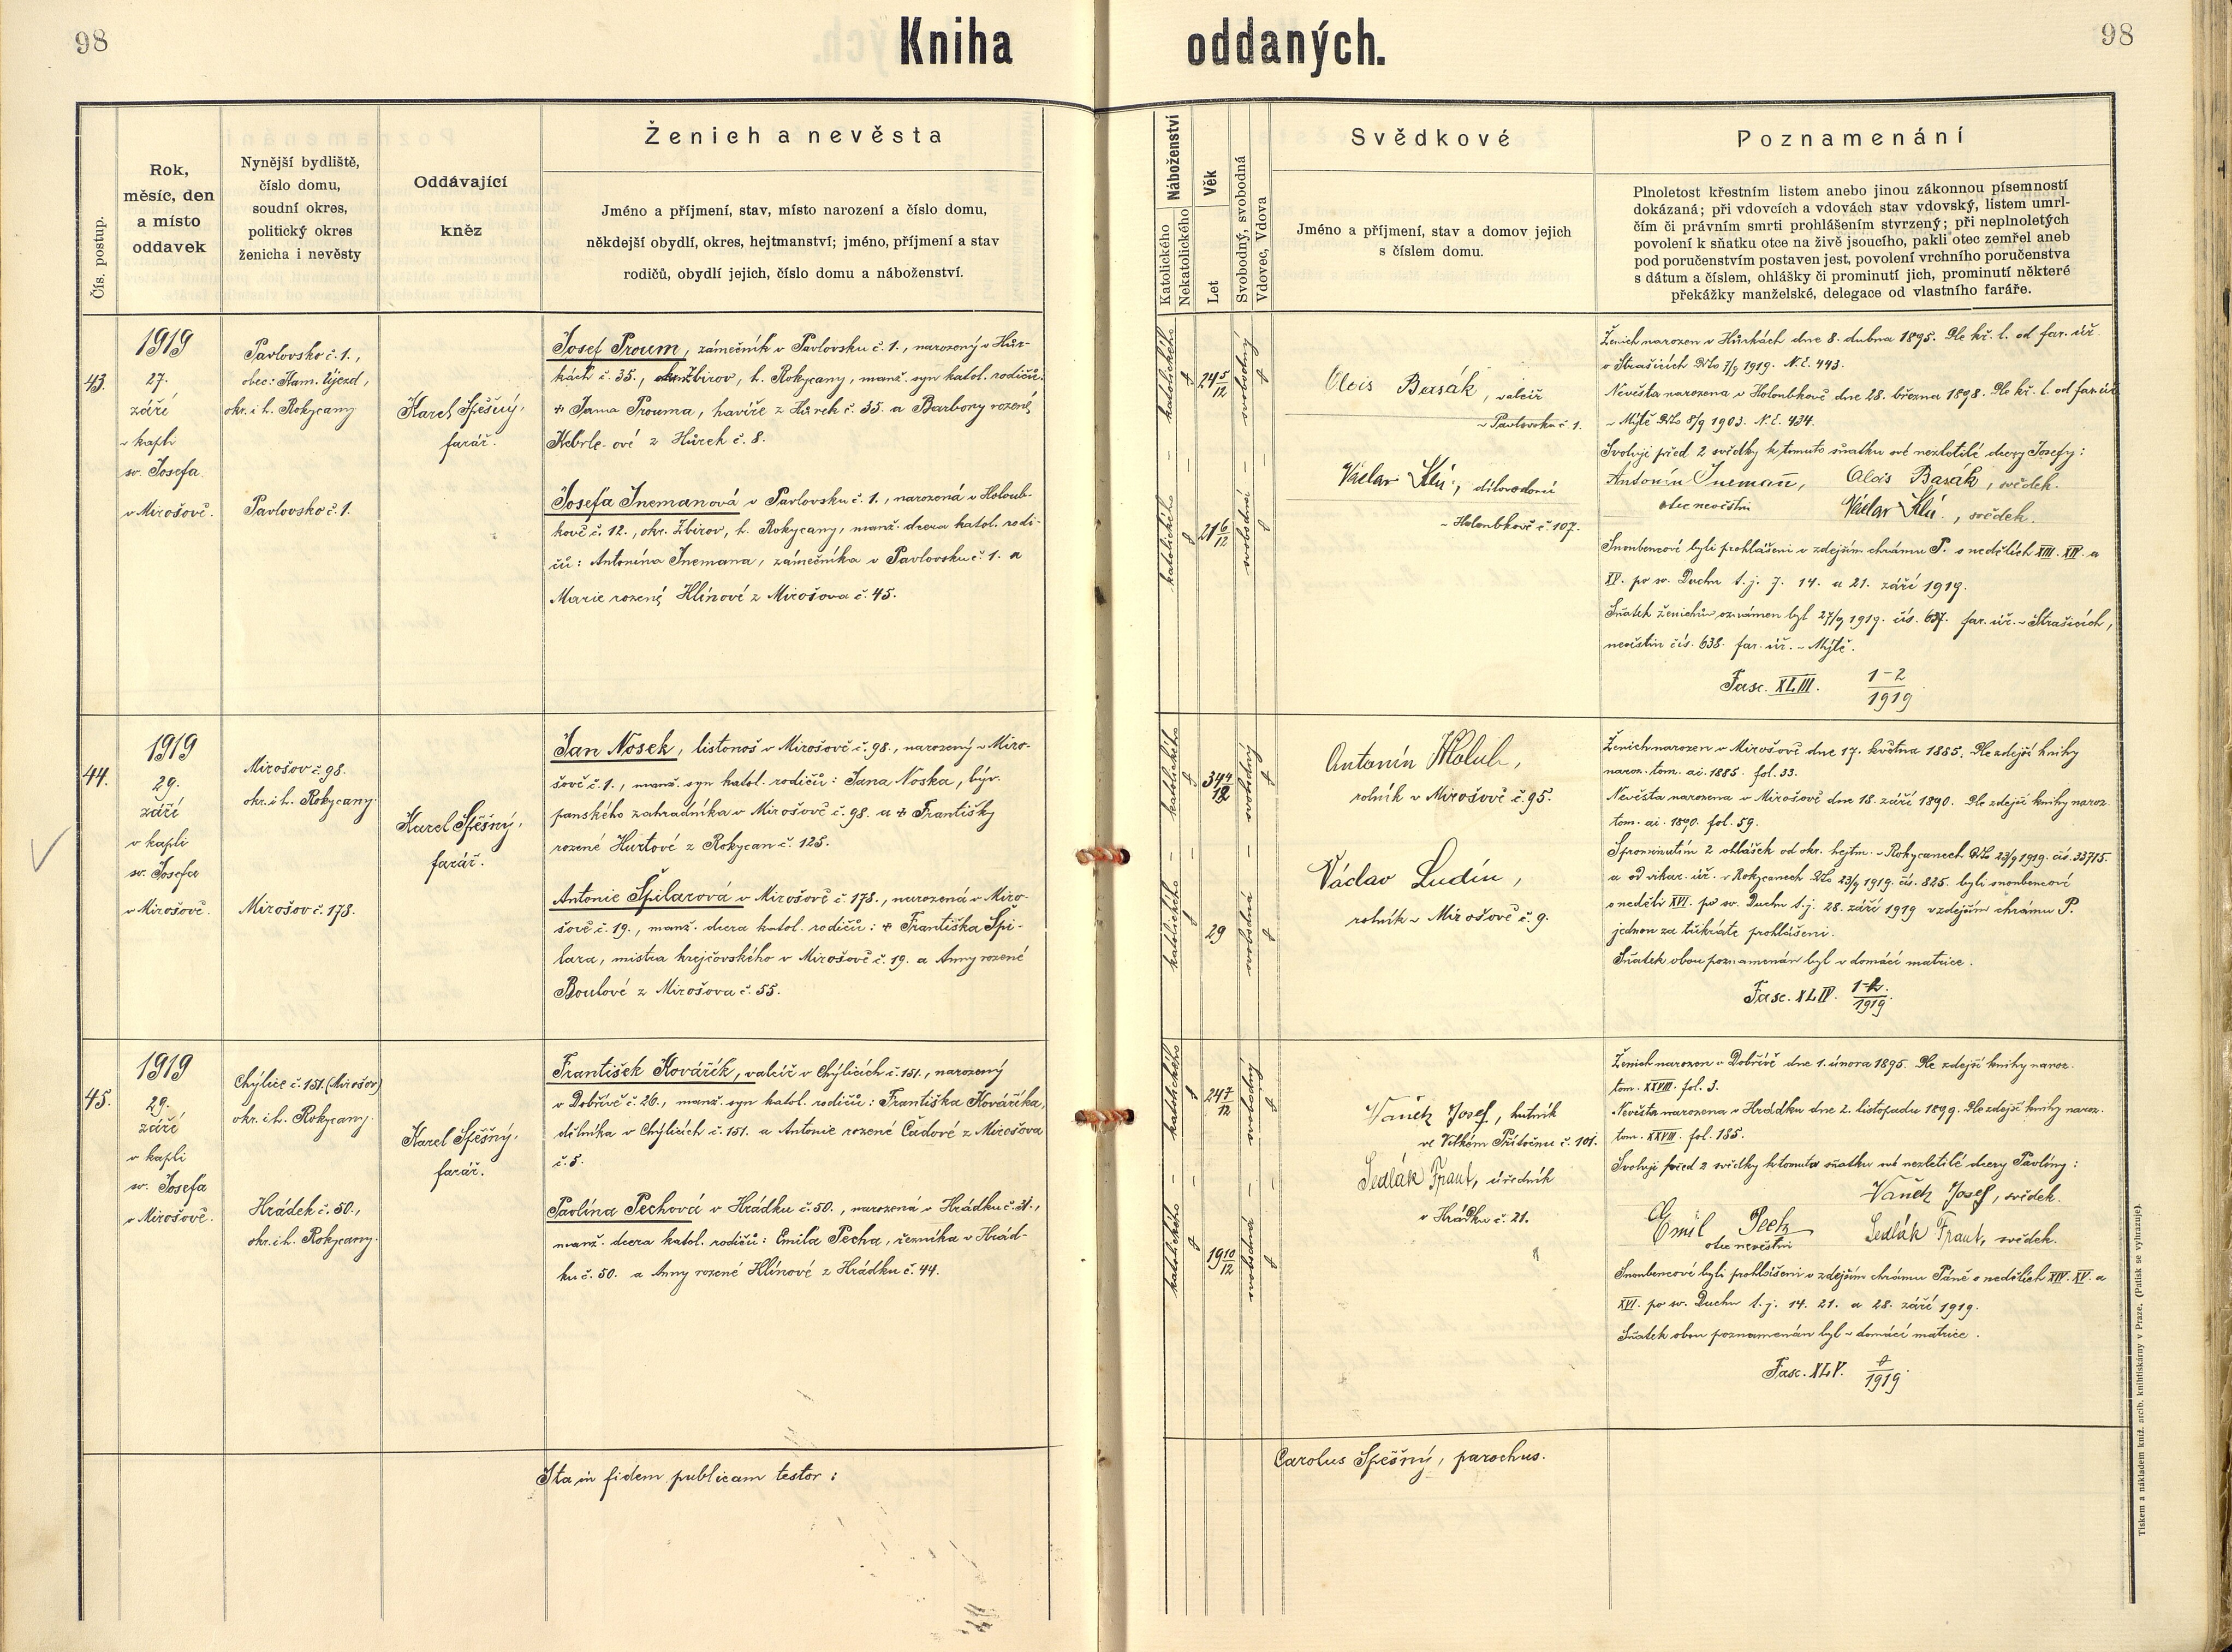 98
Kniha oddaných.
98
Čís. postup.
Rok,
měsíc, den
a místo
oddavek
Nynější bydliště,
číslo domu,
soudní okres,
politický okres
ženicha i nevěsty
Oddávající
kněz
Ženich a nevěsta
Jméno a příjmení, stav, místo narození a číslo domu,
někdejší obydlí, okres, hejtmanství; jméno, příjmení a stav
rodičů, obydlí jejich, číslo domu a náboženství.
Náboženství
Katolického
Nekatolického
Věk
Let
Svobodný, svobodná
Vdovec, Vdova
Svědkové
Jméno a příjmení, stav a domov jejich
s číslem domu.
Poznamenání
Plnoletost křestním listem anebo jinou zákonnou písemností
dokázaná; při vdovcích a vdovách stav vdovský, listem umrl-
čím či právním smrti prohlášením stvrzený; při neplnoletých
povolení k sňatku otce na živě jsoucího, pakli otec zemřel aneb
pod poručenstvím postaven jest, povolení vrchního poručenstva
s dátum a číslem, ohlášky či prominutí jich, prominutí některé
překážky manželské, delegace od vlastního faráře.
43.
1919
27.
září
v kapli
sv. Josefa
v Mirošově.
Pavlovsko č. 1.,
obec: Kam. Újezd,
okr. i h. Rokycany
Pavlovsko č. 1.
Karel Spěšný,
farář.
Josef Proum, zámečník v Pavlovsku č. 1., narozený v Hůr-
kách č. 35., Zbirov, h. Rokycany, manž. syn katol. rodičů:
+ Jana Prouma, havíře z Hůrek č. 35. a Barbory rozené
Keberle-ové z Hůrek č. 8.
Josefa Inemanová v Pavlovsku č. 1., narozená v Holoub-
kově č. 12., okr. Zbirov, h. Rokycany, manž. dcera katol. rodi-
čů: Antonína Inemana, zámečníka v Pavlovsku č. 1. a
Marie rozené Hlínové z Mirošova č. 45.
katolického
24 5/12
svobodný
katolického
21 6/12
svobodná
Alois Basák, valcíř
v Pavlovsku č. 1.
Václav, dílovedoucí
v Holoubkově č. 107.
Ženich narozen v Hůrkách dne 8. dubna 1895. Dle kř. l. od far. úř.
v Strašicích Dto 7/9 1919. N. E. 443.
Nevěsta narozena v Holoubkově dne 28. března 1898. Dle kř. l. od far. úř.
v Mýtě Dto 8/9 1903. N. E. 434.
Svoluji před 2 svědky k tomuto sňatku své nezletilé dcery Josefy:
Antonín Ineman, Alois Basák, svědek.
otec nevěstin Václav, svědek.
Snoubencové byli prohlášeni v zdejším chrámu P. o nedělích XIII. XIV. a
XV. po sv. Duchu t. j. 7. 14. a 21. září 1919.
Sňatek ženichův oznámen byl 27/9 1919. čís. 637. far. úř. v Strašicích,
nevěstin čís. 638. far. úř. v Mýtě.
Fasc. XLIII. 1-2/1919
44.
1919
29.
září
v kapli
sv. Josefa
v Mirošově.
Mirošov č. 98.
okr. i h. Rokycany.
Mirošov č. 178.
Karel Spěšný,
farář.
Jan Nosek, listonoš v Mirošově č. 98., narozený v Miro-
šově č. 1., manž. syn katol. rodičů: Jana Noska, býv.
panského zahradníka v Mirošově č. 98. a + Františky
rozené Hurtové z Rokycan č. 125.
Antonie Špilarová v Mirošově č. 178., narozená v Miro-
šově č. 19., manž. dcera katol. rodičů: + Františka Špi-
lara, mistra krejčovského v Mirošově č. 19. a Anny rozené
Boulové z Mirošova č. 55.
katolického
34 4/12
svobodný
katolického
29
svobodná
Antonín Holub,
rolník v Mirošově č. 95.
Václav Ludín,
rolník v Mirošově č. 9.
Ženich narozen v Mirošově dne 17. května 1885. Dle zdejší knihy
naroz. tom. ai. 1885. fol. 33.
Nevěsta narozena v Mirošově dne 18. září 1890. Dle zdejší knihy naroz.
tom. ai. 1890. fol. 59.
S prominutím 2 ohlášek od okr. hejtm. v Rokycanech Dto 23/9 1919. čís. 33715.
a od vikar. úř. v Rokycanech Dto 23/9 1919. čís. 825. byli snoubencové
o neděli XVI. po sv. Duchu t. j. 28. září 1919 v zdejším chrámu P.
jednou za třikráte prohlášeni.
Sňatek obou poznamenán byl v domácí matrice.
Fasc. XLIV. 1-2/1919.
45.
1919
29.
září
v kapli
sv. Josefa
v Mirošově.
Chýlice č. 151. (Mirošov)
okr. i h. Rokycany.
Hrádek č. 50.,
okr. i h. Rokycany.
Karel Spěšný,
farář.
František Kovářík, valcíř v Chýlicích č. 151., narozený
v Dobřívě č. 26., manž. syn katol. rodičů: Františka Kováříka,
dělníka v Chýlicích č. 151. a Antonie rozené Čadové z Mirošova
č. 5.
Pavlína Pechová v Hrádku č. 50., narozená v Hrádku č. 21.,
manž. dcera katol. rodičů: Emila Pecha, řezníka v Hrád-
ku č. 50. a Anny rozené Hlínové z Hrádku č. 44.
katolického
24 7/12
svobodný
katolického
19 10/12
svobodná
Vaněk Josef, hutník
ve Velkém Přítočnu č. 101.
Sedlák Frant, úředník
v Hrádku č. 21.
Ženich narozen v Dobřívě dne 1. února 1895. Dle zdejší knihy naroz.
tom. XXVIII. fol. 3.
Nevěsta narozena v Hrádku dne 2. listopadu 1899. Dle zdejší knihy naroz.
tom. XXVIII. fol. 185.
Svoluji před 2 svědky k tomuto sňatku své nezletilé dcery Pavlíny:
Vaněk Josef, svědek.
Emil Pech Sedlák Frant, svědek.
otec nevěstin
Snoubencové byli prohlášeni v zdejším chrámu Páně o nedělích XIV. XV. a
XVI. po sv. Duchu t. j. 14. 21. a 28. září 1919.
Sňatek obou poznamenán byl v domácí matrice.
Fasc. XLV. 1919
Ita in fidem publicam testor:
Carolus Spěšný, parochus.
Tiskem a nákladem kníž. arcib. knihtiskárny v Praze. (Patisk se vyhrazuje).